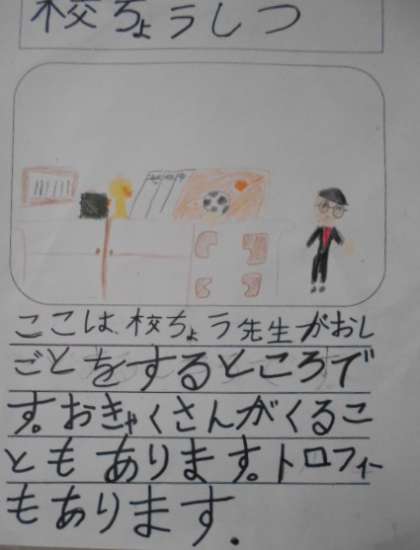 校ちょうしつ
ここは、校ちょう先生がおし
ごとをするところで
す。おきゃくさんがくるこ
ともあります。トロフィー
もあります.